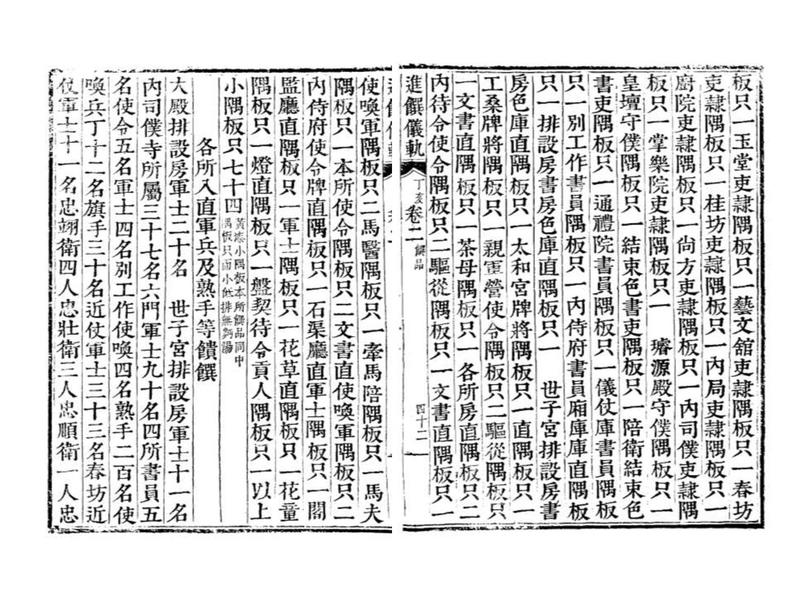 板只一玉堂吏隷隅板只一藝文舘吏隷隅板只一春坊
吏隷隅板只一桂坊吏隷隅板只一內局吏隷隅板只一
廚院吏隷隅板只一尙方吏隷隅板只一內司僕吏隷隅
板只一掌樂院吏隷隅板只一 璿源殿守僕隅板只一
皇壇守僕隅板只一結束色書吏隅板只一陪衛結束色
書吏隅板只一通禮院書員隅板只一儀仗庫書員隅板
只一別工作書員隅板只一內侍府書員廂庫庫直隅板
只一排設房書房色庫直隅板只一 世子宮排設房書
房色庫直隅板只一太和宮牌將隅板只一直隅板只一
工桑牌將隅板只一親軍營使令隅板只二驅從隅板只
一文書直隅板只一茶母隅板只一各所房直隅板只二
內待令使令隅板只二驅從隅板只一文書直隅板只一
進饌儀軌 丁亥 卷二 饌品 四十二
使喚軍隅板只二馬醫隅板只一牽馬陪隅板只一馬夫
隅板只一本所使令隅板只二文書直使喚軍隅板只二
內侍府使令牌直隅板只一石渠廳直軍士隅板只一閣
監廳直隅板只一軍士隅板只一花草直隅板只一花童
隅板只一燈直隅板只一盤契待令貢人隅板只一以上
小隅板只七十四 黃漆小隅板本所饌品同中
隅板只而小
各所入直軍兵及熟手等饋饌
大殿排設房軍士二十名 世子宮排設房軍士十一名
內司僕寺所屬三十七名六門軍士九十名四所書員五
名使令五名軍士四名別工作使喚四名熟手二百名使
喚兵丁十二名旗手三十名近仗軍士三十三名春坊近
仗軍士十一名忠翊衛四人忠壯衛三人忠順衛一人忠